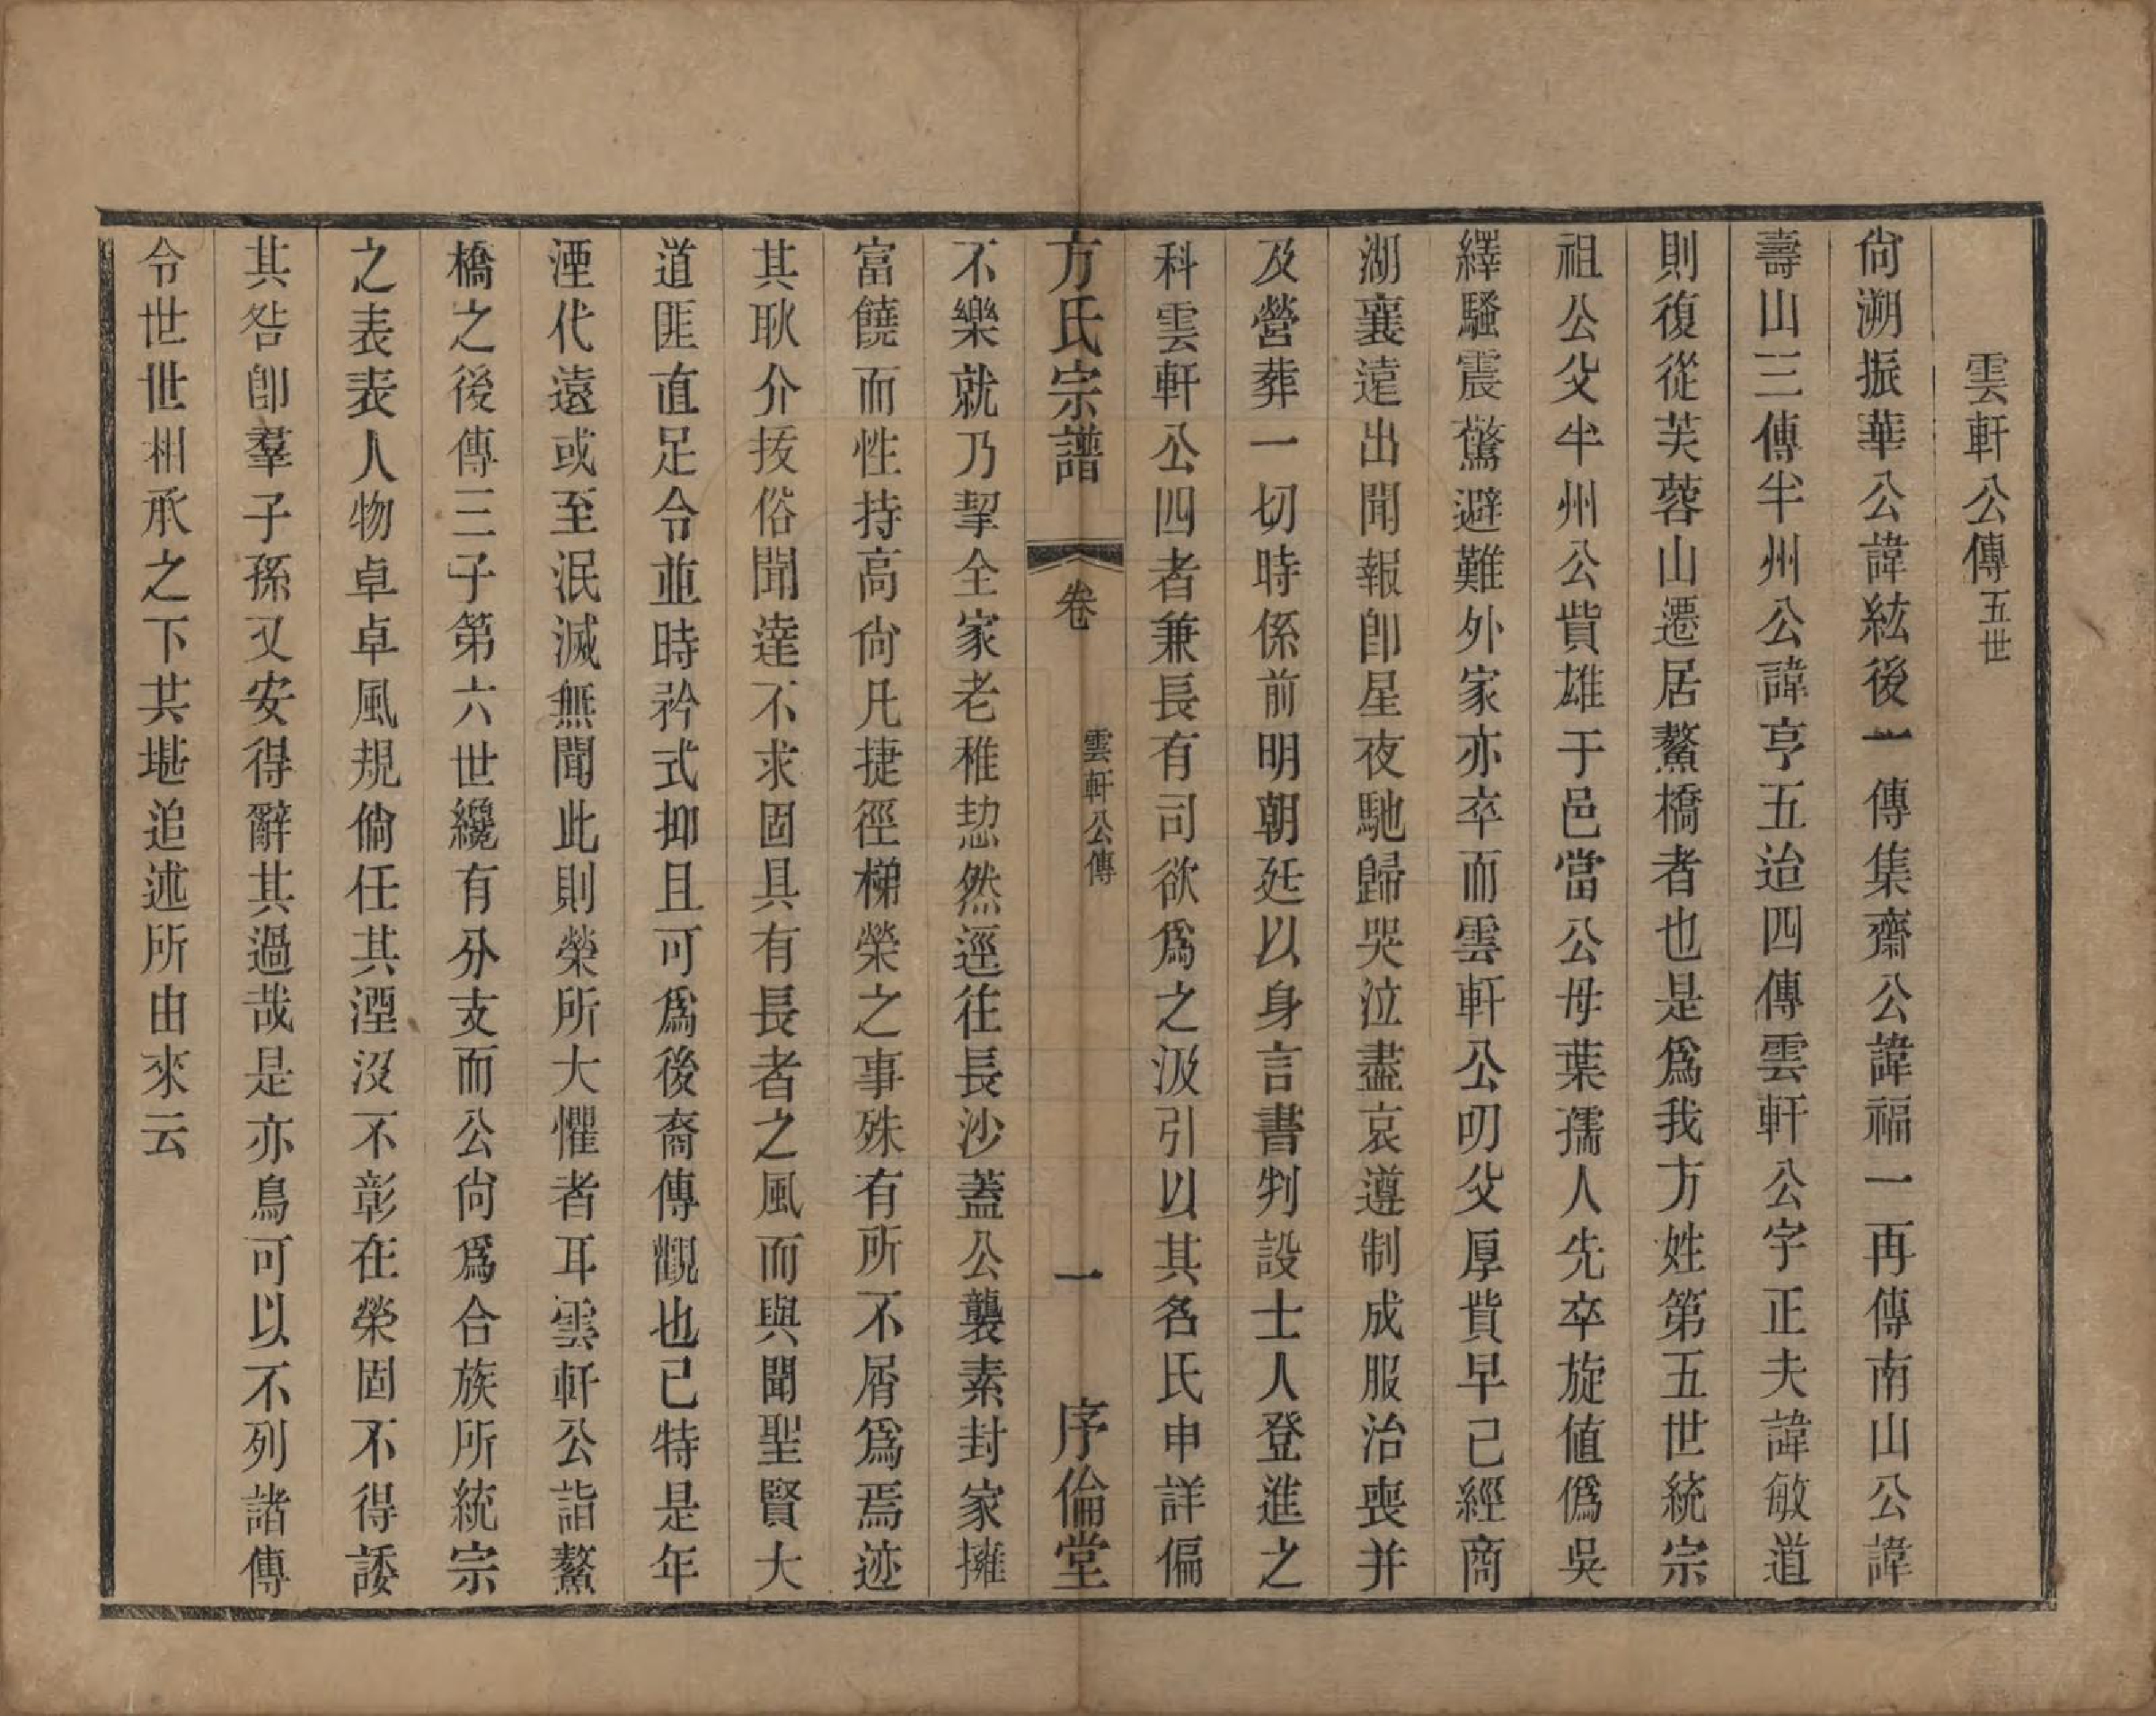 雲軒公傳五世
尙溯振華公諱紘後一傳集齋公諱福一再傳南山公諱
壽山三傳半州公諱亨五迨四傳雲軒公字正夫諱敏道
則復從芙蓉山遷居鰲橋者也是爲我方姓第五世統宗
祖公父半州公貲雄于邑當公母葉孺人先卒旋値僞吳
繹騷震驚避難外家亦卒而雲軒公叨父厚貲早已經商
湖襄遠出聞報卽星夜馳歸哭泣盡哀遵制成服治喪并
及營葬一切時係前明朝廷以身言書判設士人登進之
科雲軒公四者兼長有司欲爲之汲引以其名氏申詳偏
方氏宗譜 卷 雲軒公傳 一 序倫堂
不樂就乃挈全家老稚恝然逕往長沙蓋公襲素封家擁
富饒而性持高尙凡捷徑梯榮之事殊有所不屑爲焉迹
其耿介拔俗聞達不求固具有長者之風而與聞聖賢大
道匪直足令並時矜式抑且可爲後裔傳觀也已特是年
湮代遠或至泯滅無聞此則榮所大懼者耳雲軒公詣鰲
橋之後傳三子第六世纔有分支而公尙爲合族所統宗
之表表人物卓卓風規倘任其湮沒不彰在榮固不得諉
其咎卽羣子孫又安得辭其過哉是亦烏可以不列諸傳
令世世相承之下共堪追述所由來云